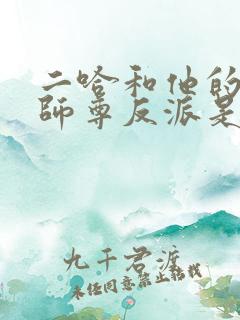 二哈和他的
師尊反派是
九千君渡
未经同意禁止转载